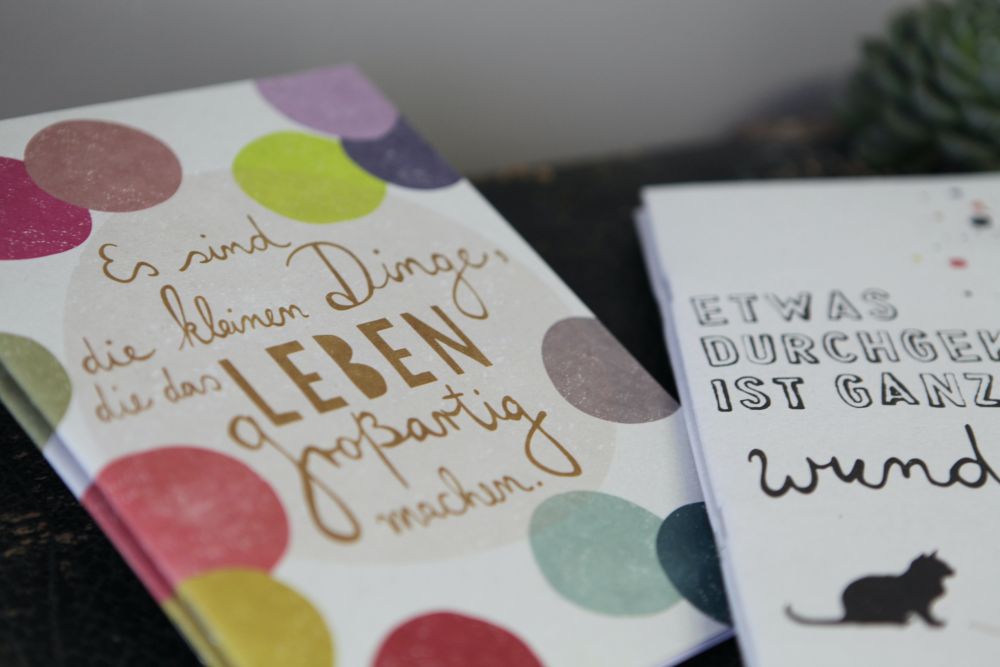 Es sind
die kleinen Dinge,
die das LEBEN
großartig
machen.
ETWAS
DURCHGEK
IST GANZ
wund